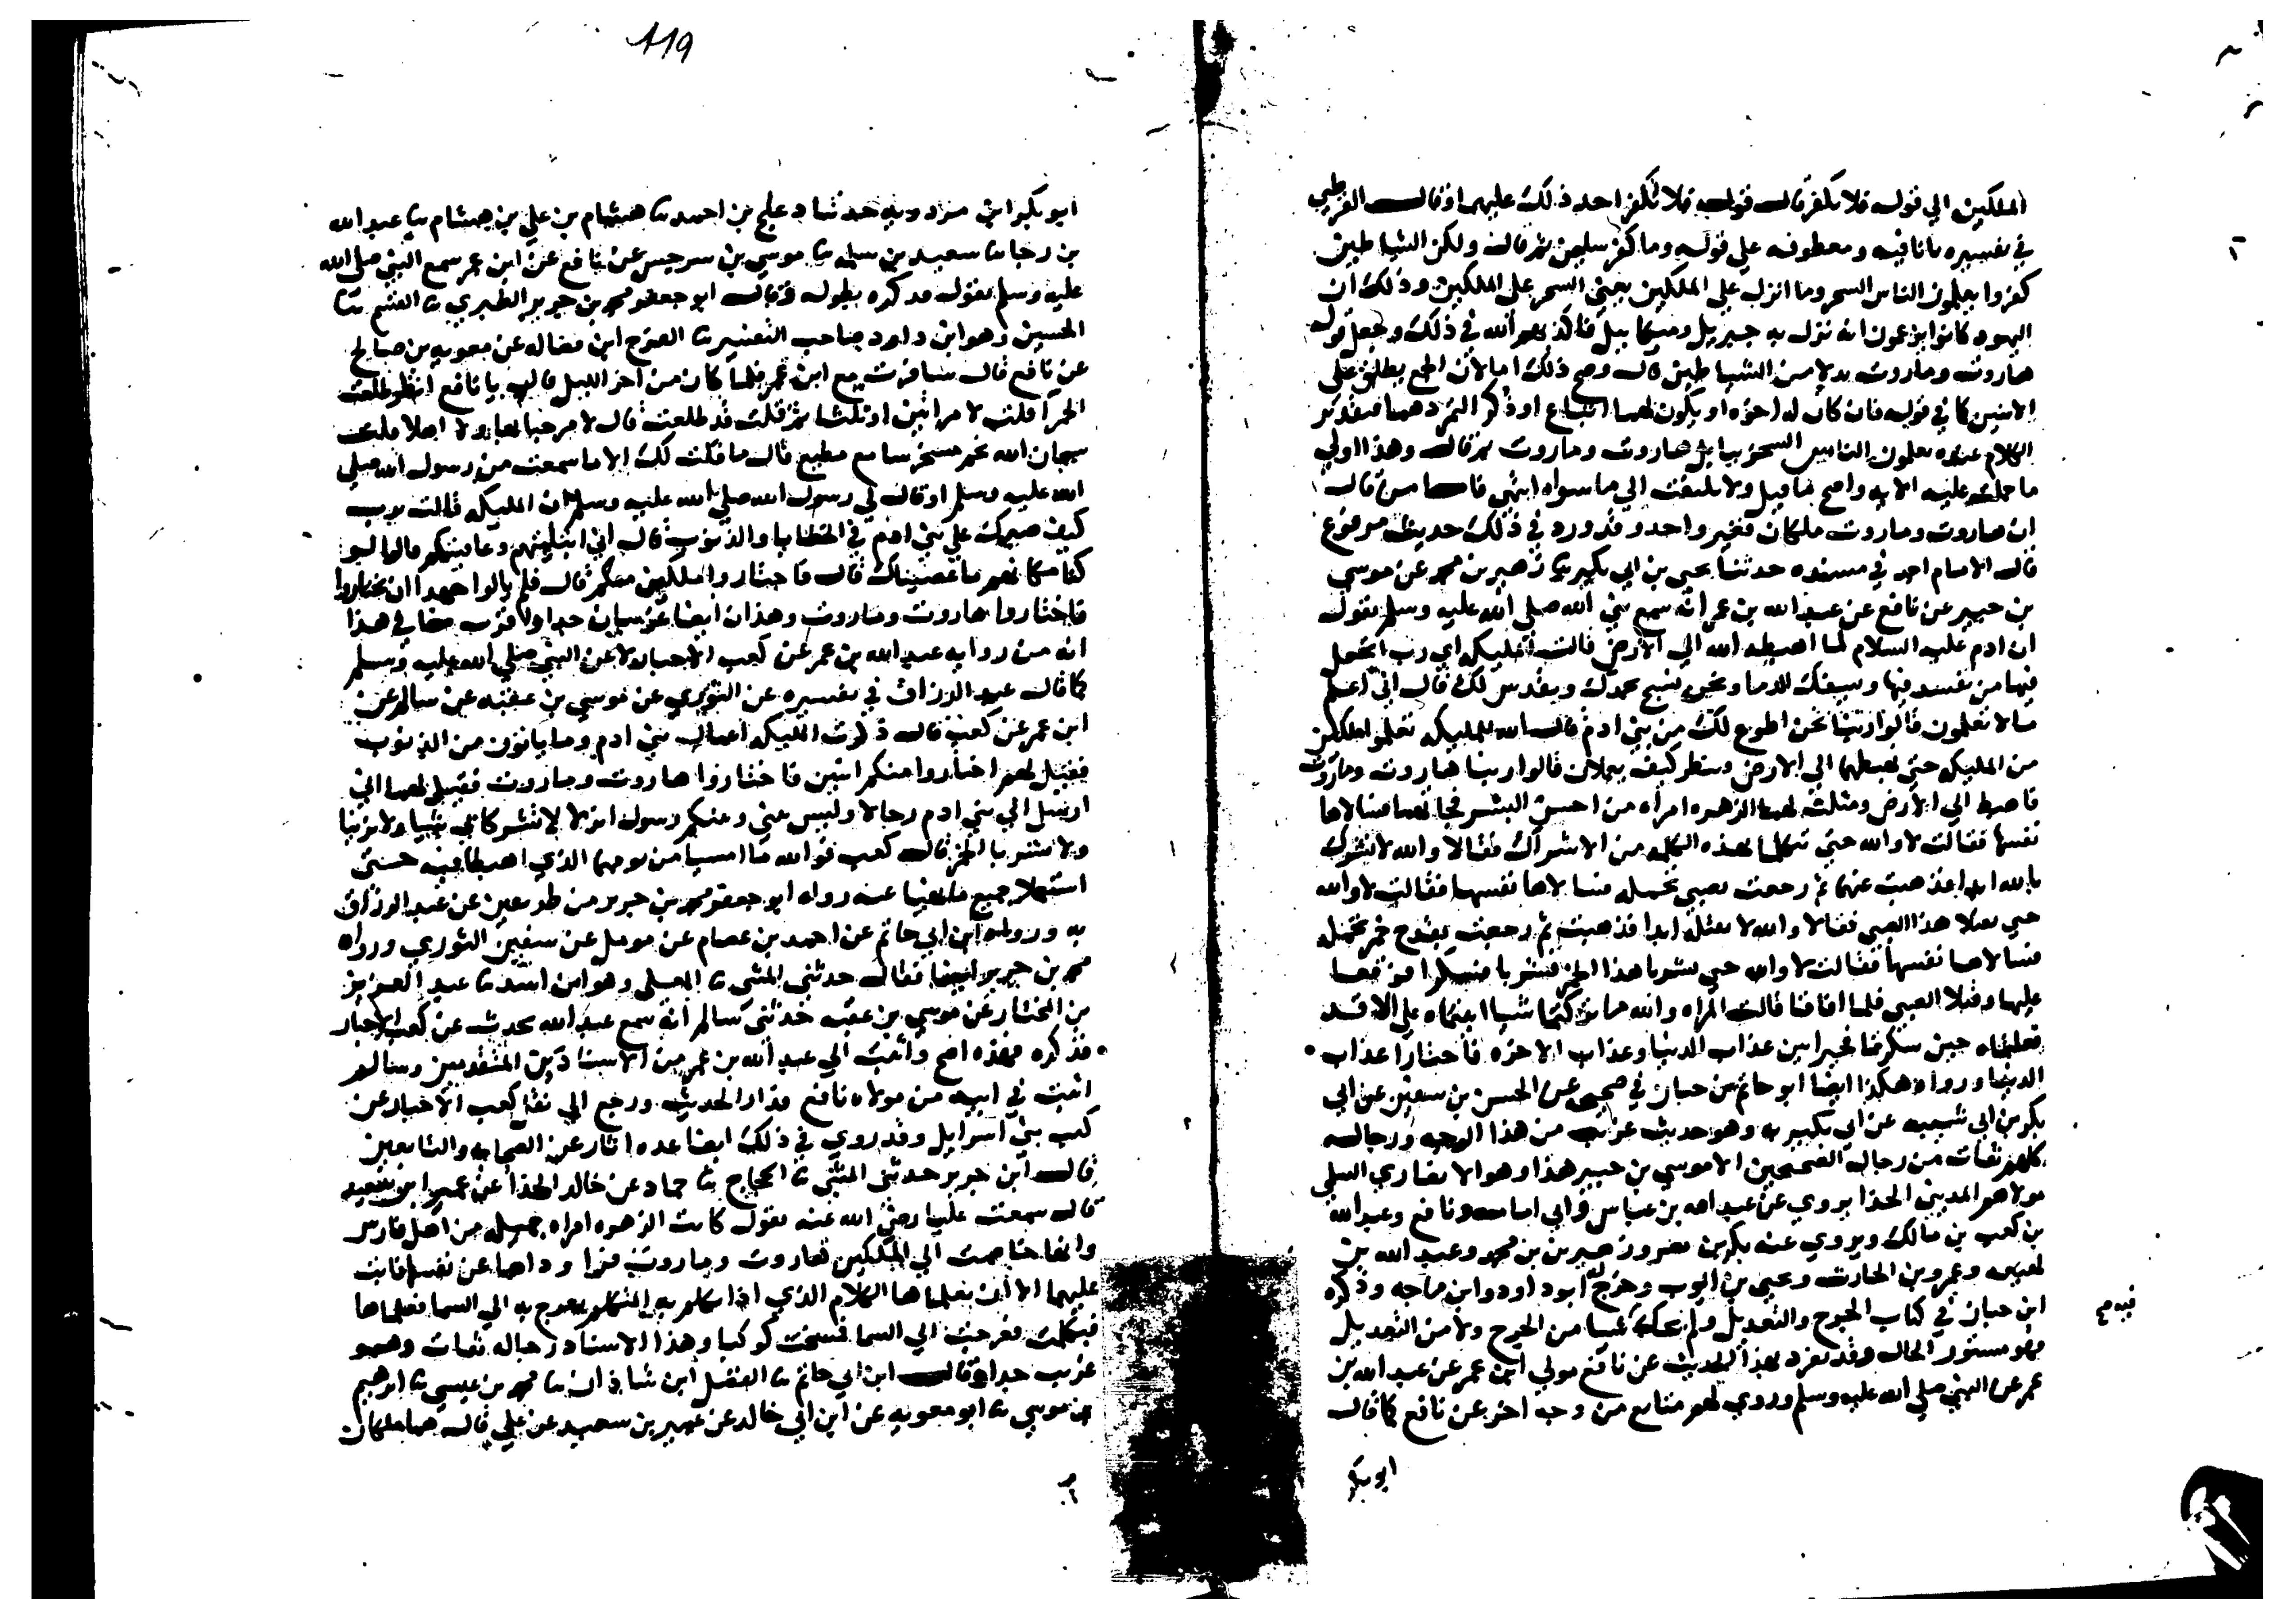 الملكين الي قوله فلا تكفر قال قوله فلا تكفر احد ذلك عليهما وقال القرطبي
في تفسيره ما نافيه ومعطوفه علي قوله وما كفر سليمن ثم قال ولكن الشياطين
كفروا يعلمون الناس السحر وما انزل علي الملكين يعني السحر علي الملكين وذلك ان
اليهود كانوا يزعمون انه نزل به جبريل وميكاييل فاكذبهم الله في ذلك وجعل قوله
هاروت وماروت بدلا من الشياطين قال وصح ذلك اما لان الجمع يطلق علي
الاثنين كما في قوله فان كان له اخوه او يكون لهما اتباع او ذكرا لتمردهما فتقدير
الكلام عنده يعلمون الناس السحر ببابل هاروت وماروت ثم قال وهذا اولي
ما حملت عليه الايه واصح ما قيل ولا يلتفت الي ما سواه انتهي فاما من قال
ان هاروت وماروت ملكان فغير واحد وقد ورد في ذلك حديث مرفوع
قال الامام احمد في مسنده حدثنا يحيى بن ابي بكير ثنا زهير بن محمد عن موسي
بن جبير عن نافع عن عبد الله بن عمر انه سمع نبي الله صلي الله عليه وسلم يقول
ان ادم عليه السلام لما اهبطه الله الي الارض قالت المليكه اي رب اتجعل
فيها من يفسد فيها ويسفك الدما ونحن نسبح بحمدك ونقدس لك قال اني اعلم
ما لا تعلمون قالوا ربنا نحن اطوع لك من بني ادم قال الله للمليكه تعلموا ملكين
من المليكه حتي نهبطهما الي الارض وننظر كيف يعملان قالوا ربنا هاروت وماروت
فاهبطا الي الارض ومثلت لهما الزهره امراه من احسن البشر فجاتهما فسالاها
نفسها فقالت لا والله حتي تتكلما بهذه الكلمه من الاشراك فقالا والله لا نشرك
بالله ابدا فذهبت عنهما ثم رجعت بصبي تحمله فسالاها نفسها فقالت لا والله
حتي تقتلا هذا الصبي فقالا والله لا نقتله ابدا فذهبت ثم رجعت بقدح خمر تحمله
فسالاها نفسها فقالت لا والله حتي تشربا هذا الخمر فشربا فسكرا فوقعا
عليها وقتلا الصبي فلما افاقا قالت المراه والله ما تركتما شيا ابيتماه علي الا قد
فعلتماه حين سكرتما فخيرا بين عذاب الدنيا وعذاب الاخره فاختارا عذاب
الدنيا ورواه هكذا ايضا ابو حاتم بن حبان في صحيحه عن الحسن بن سفين عن ابي
بكر بن ابي شيبه عن ابن بكير به وهو حديث غريب من هذا الوجه ورجاله
كلهم ثقات من رجال الصحيحين الا موسي بن جبير هذا وهو الانصاري السلمي
مولاهم المديني الحذا يروي عن عبد الله بن عباس وابي امامه ونافع وعبد الله
بن كعب بن مالك ويروي عنه بكر بن مضر وزهير بن محمد وعبد الله بن
لهيعه وعمرو بن الحارث ويحيى بن ايوب وخرج له ابو داود وابن ماجه وذكره
ابن حبان في كتاب الجرح والتعديل ولم يحك شيا من الجرح ولا من التعديل
فهو مستور الحال وقد تفرد بهذا الحديث عن نافع مولي ابن عمر عن عبد الله بن
عمر عن النبي صلي الله عليه وسلم وروي لهم متابع من وجه اخر عن نافع كما قال
ابو بكر
119
ابو بكر ابن مردويه حدثنا دعلج بن احمد ثنا هشام بن علي بن هشام ثنا عبد الله
بن رجا ثنا سعيد بن سلمه ثنا موسي بن سرجس عن نافع عن ابن عمر سمع النبي صلي الله
عليه وسلم يقول فذكره بطوله وقال ابو جعفر محمد بن جرير الطبري ثنا القسم ثنا
الحسين وهو ابن داود صاحب التفسير ثنا الفرج ابن فضاله عن معويه بن صالح
عن نافع قال سافرت مع ابن عمر فلما كان من اخر الليل قال يا نافع انظر طلعت
الحمرا قلت لا مراتين او ثلثا ثم قلت قد طلعت قال لا مرحبا بها ولا اهلا قلت
سبحان الله نجم مسخر سامع مطيع قال ما قلت لك الا ما سمعت من رسول الله صلي
الله عليه وسلم او قال لي رسول الله صلي الله عليه وسلم ان المليكه قالت يرب
كيف صبرك علي بني ادم في الخطايا والذنوب قال اني ابتليتهم وعافيتكم قالوا لو
كنا مكانهم ما عصيناك قال فاختاروا ملكين منكم قال فلم يالوا جهدا ان يختاروا
فاختاروا هاروت وماروت وهذان ايضا غريبان جدا واقرب ما في هذا
انه من روايه عبد الله بن عمر عن كعب الاحبار لا عن النبي صلي الله عليه وسلم
كما قال عبد الرزاق في تفسيره عن الثوري عن موسي بن عقبه عن سالم عن
ابن عمر عن كعب قال ذكرت المليكه اعمال بني ادم وما ياتون من الذنوب
فقيل لهم اختاروا منكم اثنين فاختاروا هاروت وماروت فقيل لهما اني
ارسل الي بني ادم رجالا وليس بيني وبينكم رسول انزلا لا تشركا بي شيا ولا تزنيا
ولا تشربا الخمر قال كعب فوالله ما امسيا من يومهما الذي اهبطا فيه حتي
استكملا جميع ما نهيا عنه رواه ابو جعفر محمد بن جرير من طريقين عن عبد الرزاق
به ورواه ابن ابي حاتم عن احمد بن عصام عن مومل عن سفين الثوري ورواه
محمد بن جرير ايضا فقال حدثني المثني ثنا المعلي وهو ابن اسد ثنا عبد العزيز
بن المختار عن موسي بن عقبه حدثني سالم انه سمع عبد الله يحدث عن كعب الاحبار
فذكره فهذه اصح واثبت الي عبد الله بن عمر من الاسنادين المتقدمين وسالم
اثبت في ابيه من مولاه نافع فدار الحديث ورجع الي نقل كعب الاحبار عن
كتب بني اسرايل وقد روي في ذلك ايضا عده اثار عن الصحابه والتابعين
قال ابن جرير حدثني المثني ثنا الحجاج ثنا حماد عن خالد الحذا عن عمير ابن سعيد
قال سمعت عليا رضي الله عنه يقول كانت الزهره امراه جميله من اهل فارس
وانها خاصمت الي الملكين هاروت وماروت فراوداها عن نفسها فابت
عليهما الا ان يعلماها الكلام الذي اذا تكلم به المتكلم يعرج به الي السما فعلماها
فتكلمت فعرجت الي السما فمسخت كوكبا وهذا الاسناد رجاله ثقات وهو
غريب جدا وقال ابن ابي حاتم ثنا الفضل ابن شاذان ثنا محمد بن عيسي ثنا ابرهيم
بن موسي ثنا ابو معويه عن ابن ابي خالد عن عمير بن سعيد عن علي قال هما ملكان